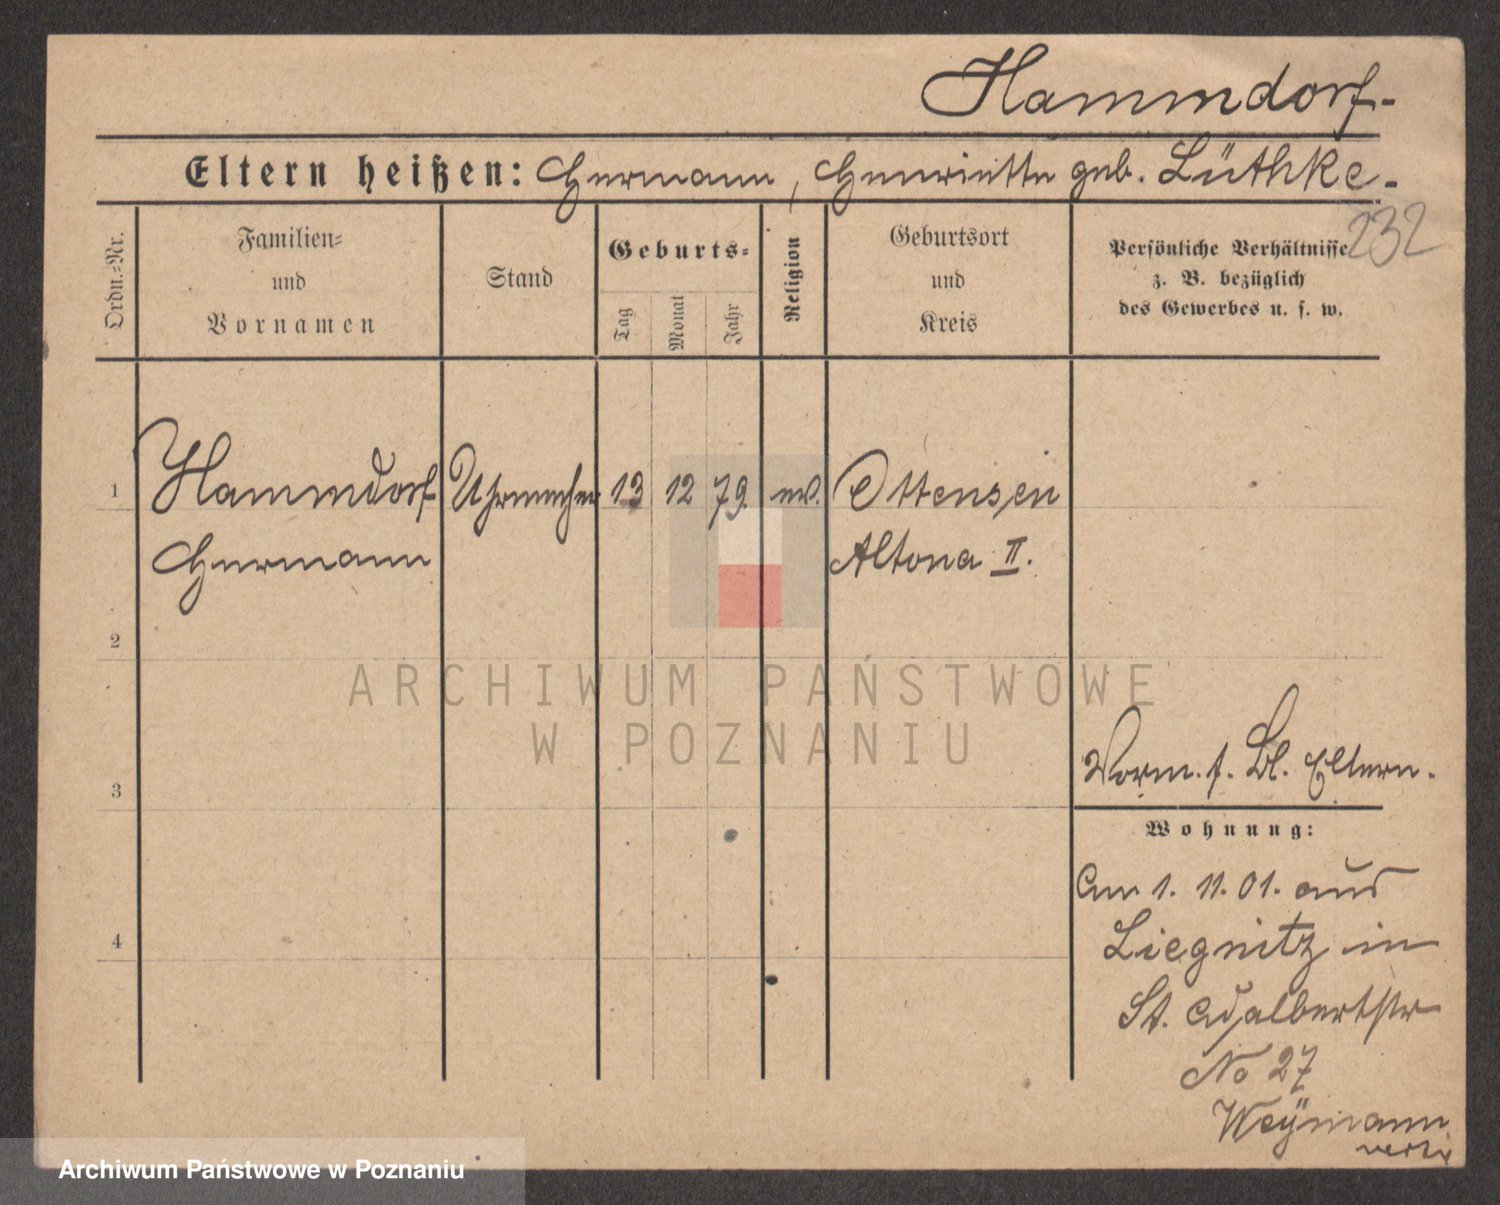 Hammdorf-
Eltern heißen: Hermann, Henriette geb. Lüthke.
232
Ordn.-Nr.
Familien-
und
Vornamen
Stand
Geburts-
Tag
Monat
Jahr
Religion
Geburtsort
und
Kreis
Persönliche Verhältnisse
z. B. bezüglich
des Gewerbes u. s. w.
1 Hammdorf Uhrmacher 13 12 79. ev. Ottensen
Hermann Altona II.
2
ARCHIWUM PAŃSTWOWE
W POZNANIU
3 Verm. s. Bl. Eltern.
Wohnung:
Am 1. 11. 01. aus
4 Liegnitz in
St. Adalbertstr
No 27
Weÿmann
Archiwum Państwowe w Poznaniu